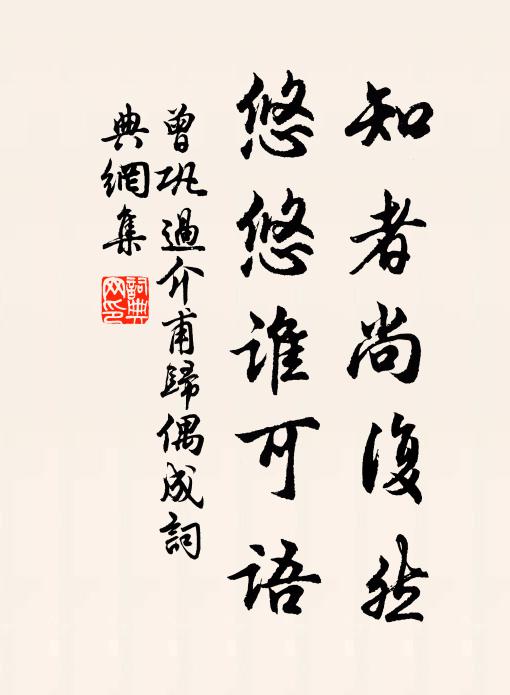 知者尚復然
悠悠誰可語
曾巩過介甫歸偶成詞
典網集
詞典
网印